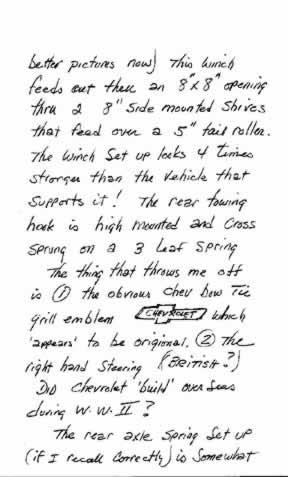 better pictures now) This winch
feeds out thru an 8" x 8" opening
thru 2 8" side mounted shives
that feed over a 5" tail roller.
The winch set up looks 4 times
stronger than the vehicle that
supports it! The rear towing
hook is high mounted and cross
sprung on a 3 leaf spring
The thing that throws me off
is ① the obvious Chev bow Tie
grill emblem CHEVROLET which
'appears' to be origional. ② The
right hand steering (British?)
Did Chevrolet 'build' over seas
during W.W.II?
The rear axle spring set up
(if I recall correctly) is somewhat